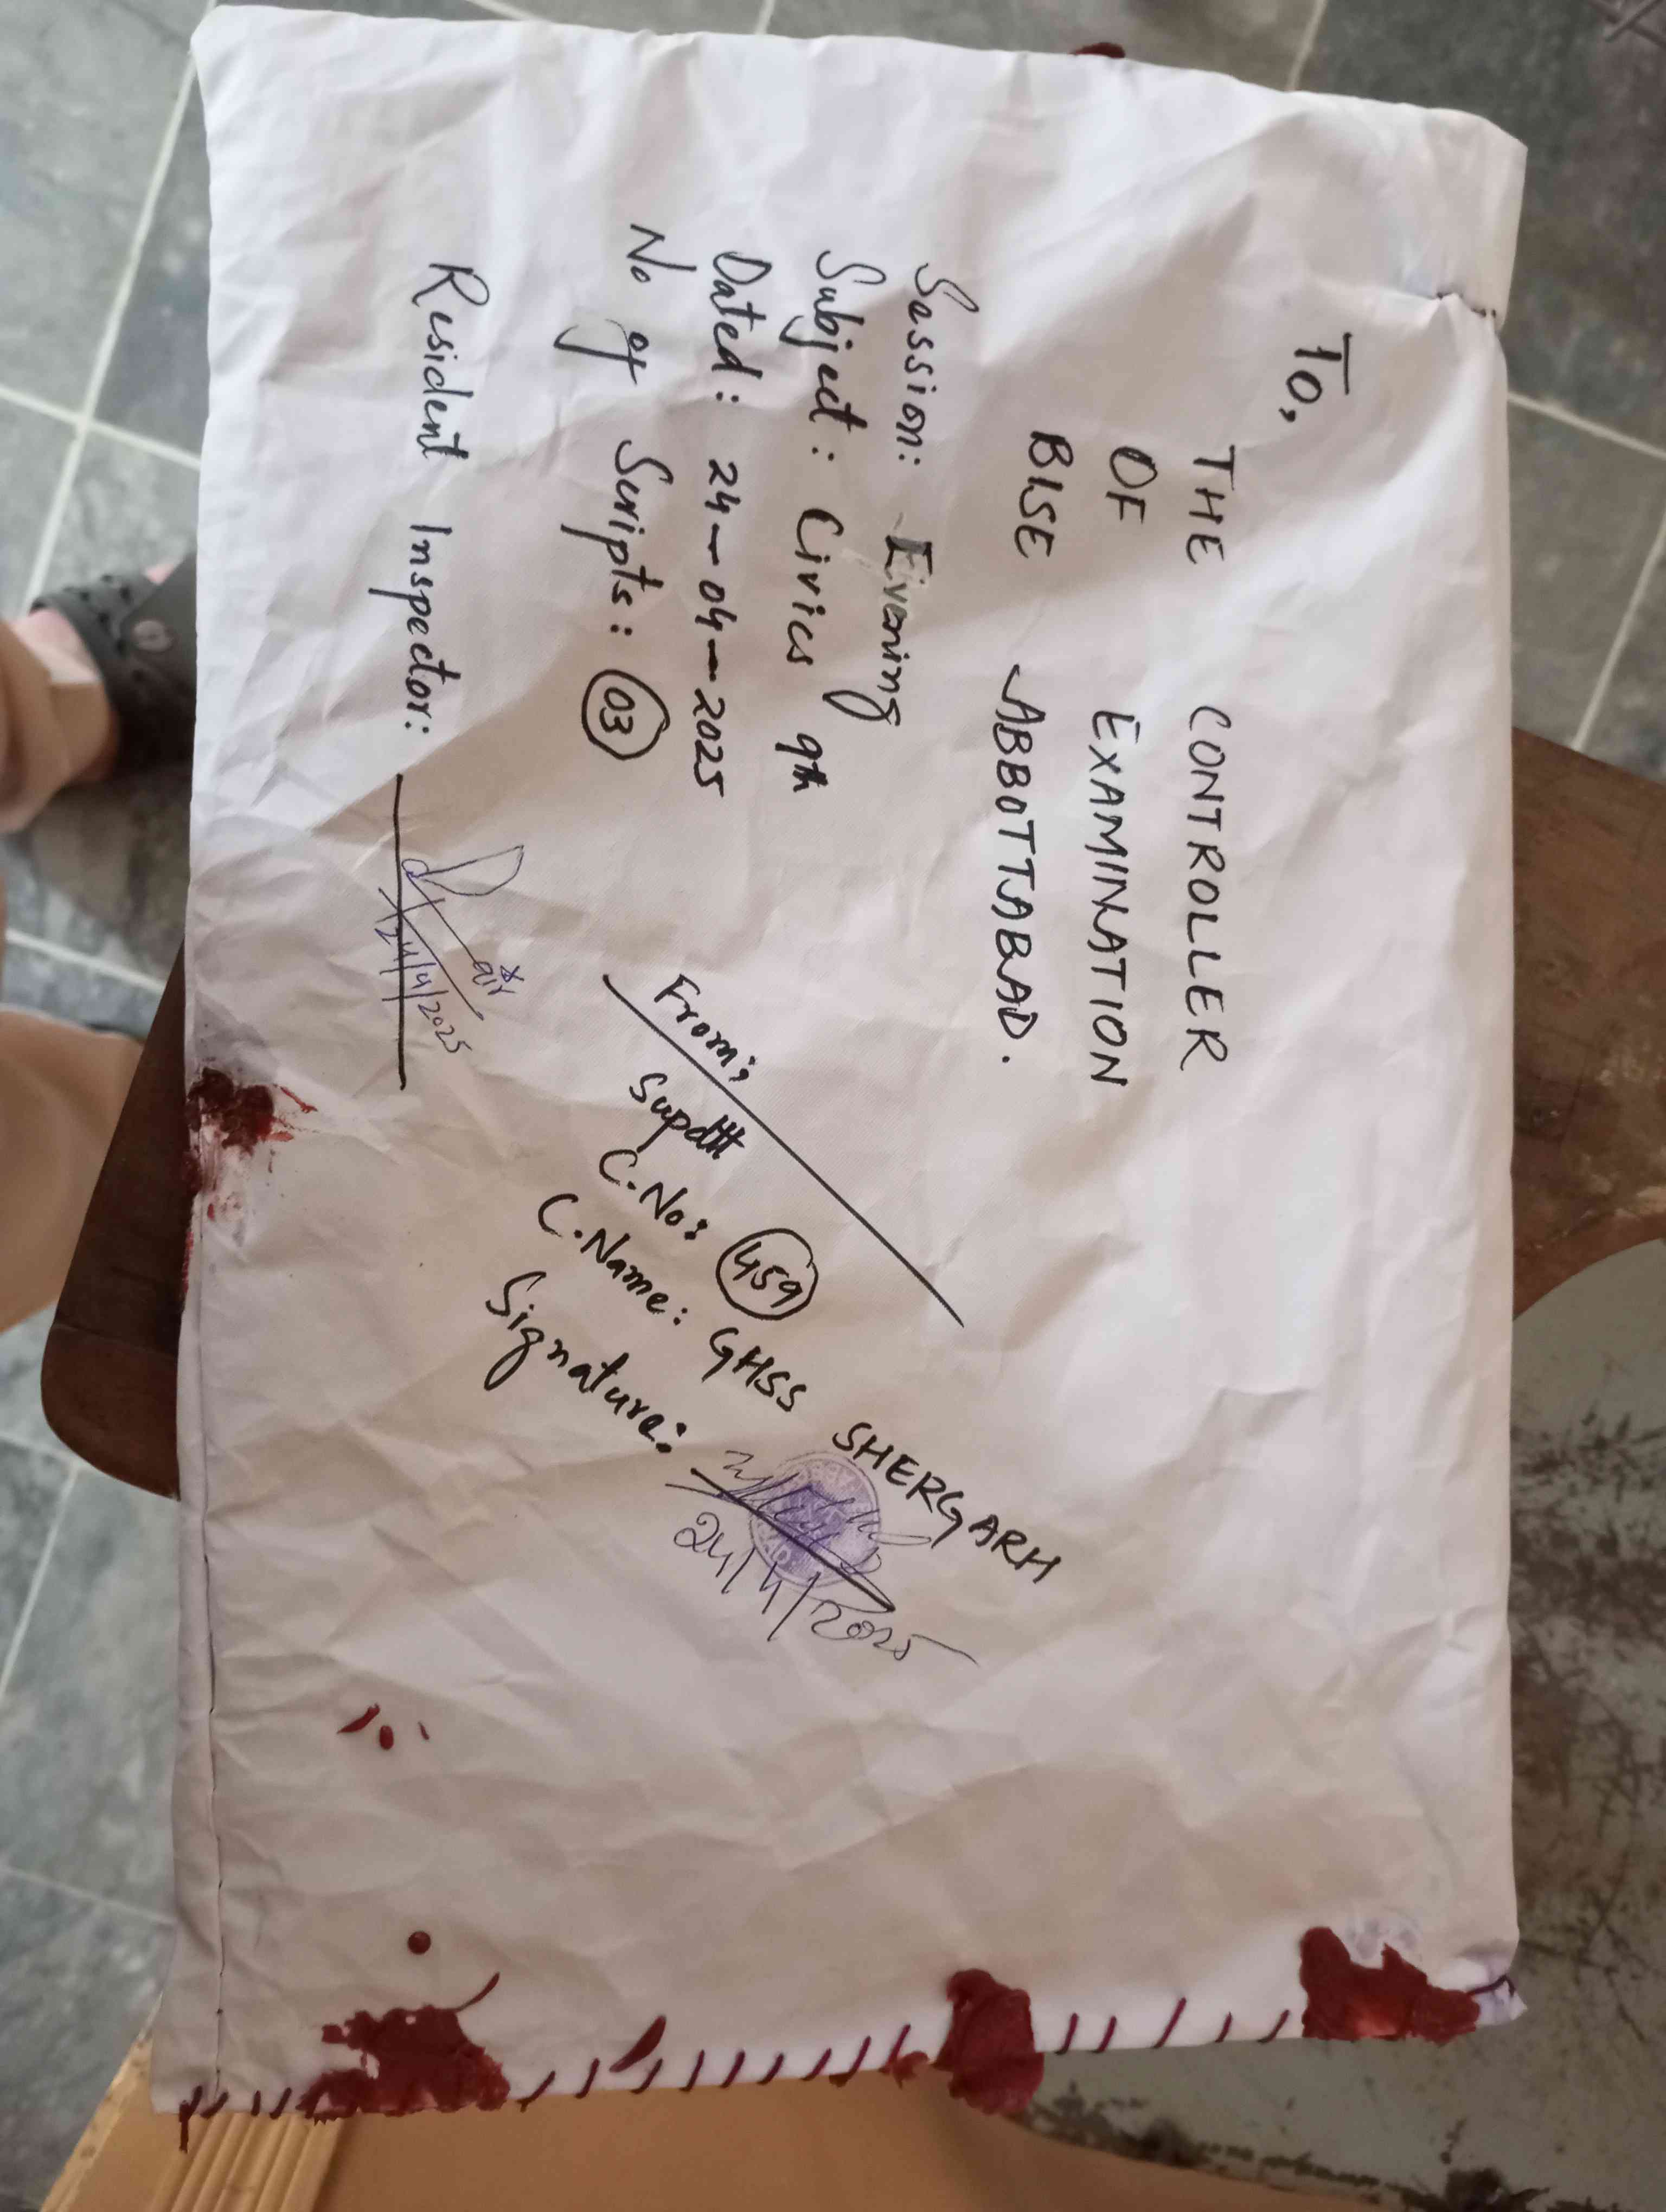 To,
THE CONTROLLER
OF EXAMINATION
BISE ABBOTTABAD.
Session: Evening
Subject: Civics 9th
Dated: 24-04-2025
No of Scripts: 03
Resident Inspector:
24/4/2025
From;
Supdtt
C.No: 459
C.Name: GHSS SHERGARH
Signature:
24/4/2025